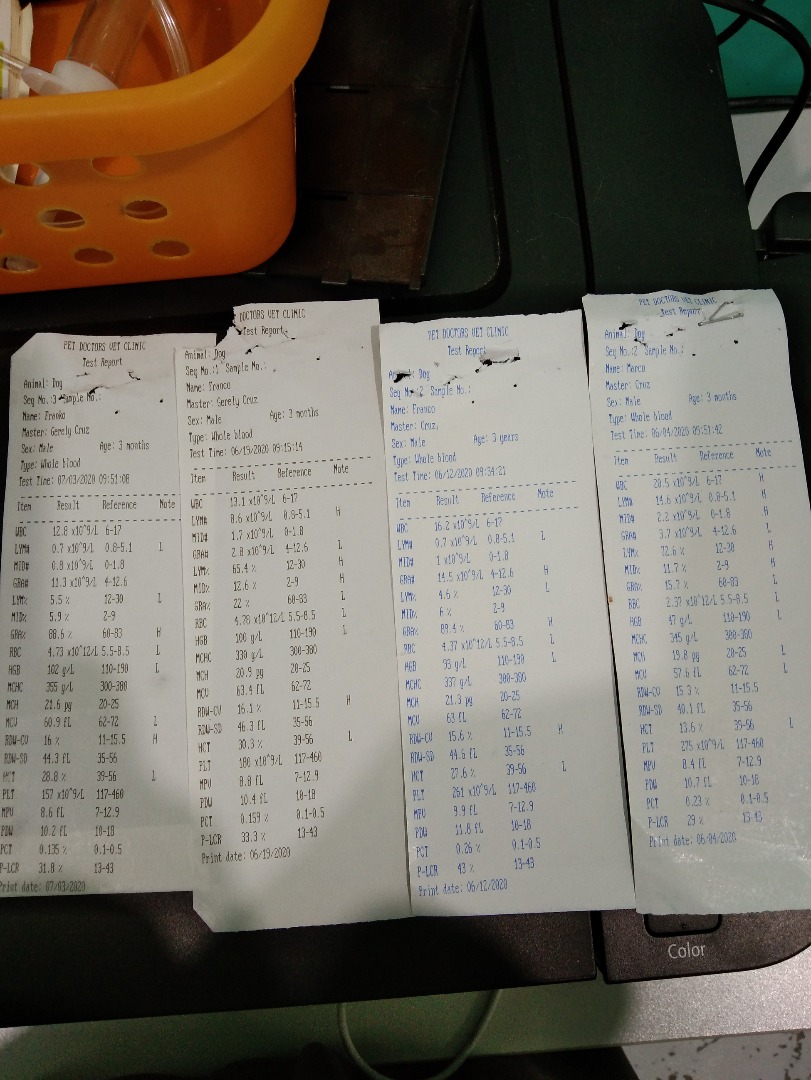 PET DOCTORS VET CLINIC
Test Report
Animal: Dog
Seq No.:3 Sample No.:
Name: Franko
Master: Gerely Cruz
Sex: Male Age: 3 months
Type: Whole blood
Test Time: 07/03/2020 09:51:08
Item Result Reference Note
WBC 12.8 x10^9/L 6-17
LYM# 0.7 x10^9/L 0.8-5.1 L
MID# 0.8 x10^9/L 0-1.8
GRA# 11.3 x10^9/L 4-12.6
LYM% 5.5 % 12-30 L
MID% 5.9 % 2-9
GRA% 88.6 % 60-83 H
RBC 4.73 x10^12/L 5.5-8.5 L
HGB 102 g/L 110-190 L
MCHC 355 g/L 300-380
MCH 21.6 pg 20-25
MCV 60.9 fL 62-72 L
RDW-CV 16 % 11-15.5 H
RDW-SD 44.3 fL 35-56
HCT 28.8 % 39-56 L
PLT 157 x10^9/L 117-460
MPV 8.6 fL 7-12.9
PDW 10.2 fL 10-18
PCT 0.135 % 0.1-0.5
P-LCR 31.8 % 13-43
Print date: 07/03/2020
DOCTORS VET CLINIC
Test Report
Animal: Dog
Seq No.:1 Sample No.:
Name: Franco
Master: Gerely Cruz
Sex: Male Age: 3 months
Type: Whole blood
Test Time: 06/19/2020 09:15:14
Item Result Reference Note
WBC 13.1 x10^9/L 6-17
LYM# 8.6 x10^9/L 0.8-5.1 H
MID# 1.7 x10^9/L 0-1.8
GRA# 2.8 x10^9/L 4-12.6 L
LYM% 65.4 % 12-30 H
MID% 12.6 % 2-9 H
GRA% 22 % 60-83 L
RBC 4.78 x10^12/L 5.5-8.5 L
HGB 100 g/L 110-190 L
MCHC 330 g/L 300-380
MCH 20.9 pg 20-25
MCV 63.4 fL 62-72
RDW-CV 16.1 % 11-15.5 H
RDW-SD 46.3 fL 35-56
HCT 30.3 % 39-56 L
PLT 180 x10^9/L 117-460
MPV 8.8 fL 7-12.9
PDW 10.4 fL 10-18
PCT 0.159 % 0.1-0.5
P-LCR 33.3 % 13-43
Print date: 06/19/2020
PET DOCTORS VET CLINIC
Test Report
Animal: Dog
Seq No.:2 Sample No.:
Name: Franco
Master: Cruz,
Sex: Male Age: 3 years
Type: Whole blood
Test Time: 06/12/2020 09:34:21
Item Result Reference Note
WBC 16.2 x10^9/L 6-17
LYM# 0.7 x10^9/L 0.8-5.1 L
MID# 1 x10^9/L 0-1.8
GRA# 14.5 x10^9/L 4-12.6 H
LYM% 4.6 % 12-30 L
MID% 6 % 2-9
GRA% 89.4 % 60-83 H
RBC 4.37 x10^12/L 5.5-8.5 L
HGB 93 g/L 110-190 L
MCHC 337 g/L 300-380
MCH 21.3 pg 20-25
MCV 63 fL 62-72
RDW-CV 15.6 % 11-15.5 H
RDW-SD 44.6 fL 35-56
HCT 27.6 % 39-56 L
PLT 261 x10^9/L 117-460
MPV 9.9 fL 7-12.9
PDW 11.8 fL 10-18
PCT 0.26 % 0.1-0.5
P-LCR 43 % 13-43
Print date: 06/12/2020
PET DOCTORS VET CLINIC
Test Report
Animal: Dog
Seq No.:2 Sample No.:
Name: Marco
Master: Cruz
Sex: Male Age: 3 months
Type: Whole blood
Test Time: 06/04/2020 09:51:42
Item Result Reference Note
WBC 20.5 x10^9/L 6-17 H
LYM# 14.6 x10^9/L 0.8-5.1 H
MID# 2.2 x10^9/L 0-1.8 H
GRA# 3.7 x10^9/L 4-12.6 L
LYM% 72.6 % 12-30 H
MID% 11.7 % 2-9 H
GRA% 15.7 % 60-83 L
RBC 2.37 x10^12/L 5.5-8.5 L
HGB 47 g/L 110-190 L
MCHC 345 g/L 300-380
MCH 19.8 pg 20-25 L
MCV 57.6 fL 62-72 L
RDW-CV 15.3 % 11-15.5
RDW-SD 40.1 fL 35-56
HCT 13.6 % 39-56 L
PLT 275 x10^9/L 117-460
MPV 8.4 fL 7-12.9
PDW 10.7 fL 10-18
PCT 0.23 % 0.1-0.5
P-LCR 29 % 13-43
Print date: 06/04/2020
Color